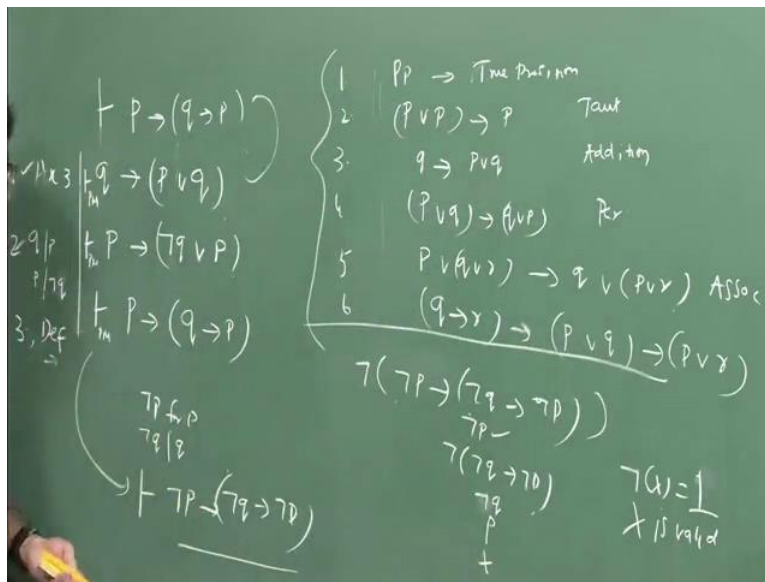 ⊢ P → (q → P)
✓Ax 3 ⊢PM q → (P ∨ q)
2. q/P P/¬q ⊢PM P → (¬q ∨ P)
3. Def → ⊢PM P → (q → P)
¬P for P
¬q/q
⊢ ¬P → (¬q → ¬P)
1 Pp → True
2. (P ∨ P) → P Taut
3. q → P∨q Addition
4 (P∨q) → (q∨P) Per
5 P∨(q∨r) → q ∨ (P∨r) Assoc
6 (q→r) → (P∨q) → (P∨r)
¬(¬P → (¬q → ¬P))
¬P
¬(¬q → ¬P)
¬q
P
¬(X) = 1
X is valid